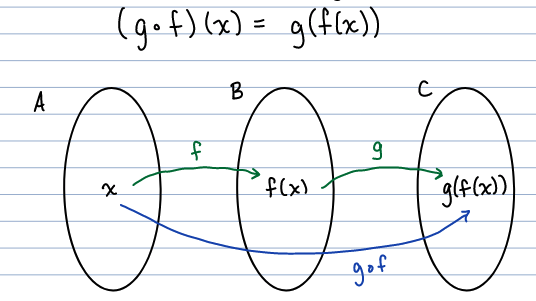 (g∘f)(x) = g(f(x))
A B C
f g
x f(x) g(f(x))
g∘f